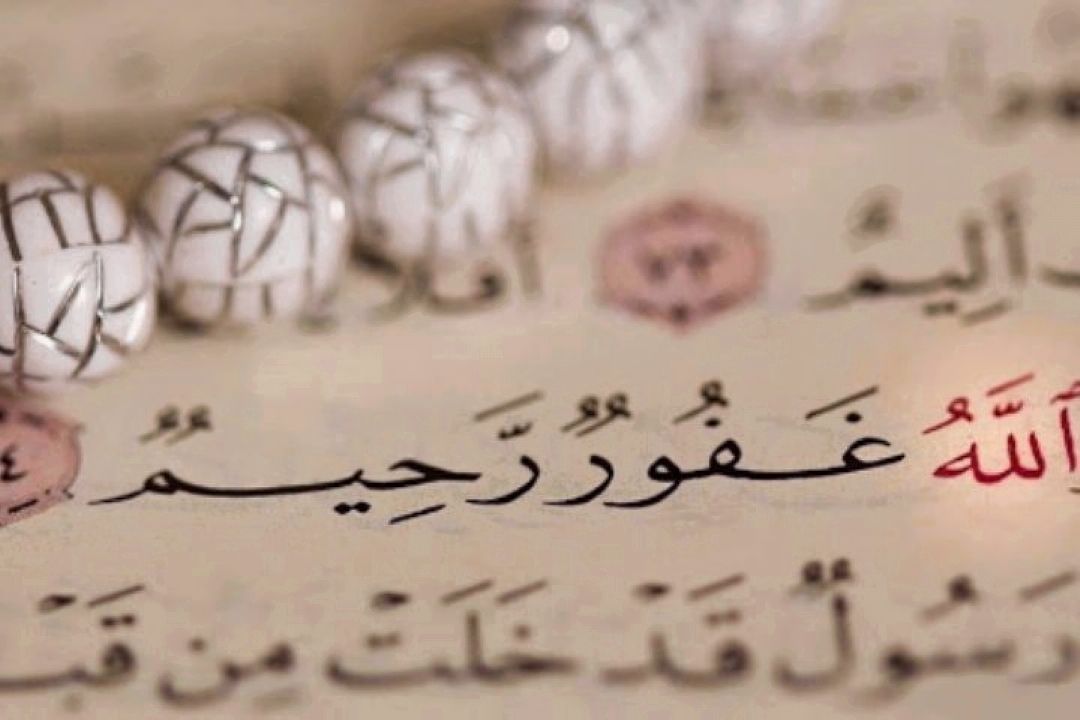 أَلِيمٌ ٧٣ أفلا
ٱللَّهُ غَفُورٌ رَّحِيمٌ ٤
رَسُولٌ قَدْ خَلَتْ مِن قَبْ